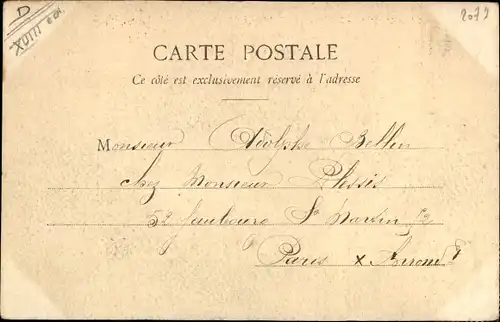 D
XVIII
2079
CARTE POSTALE
Ce côté est exclusivement réservé à l'adresse
Monsieur Adolphe Bellin
chez Monsieur Plessis
52 faubourg St Martin 52
Paris x